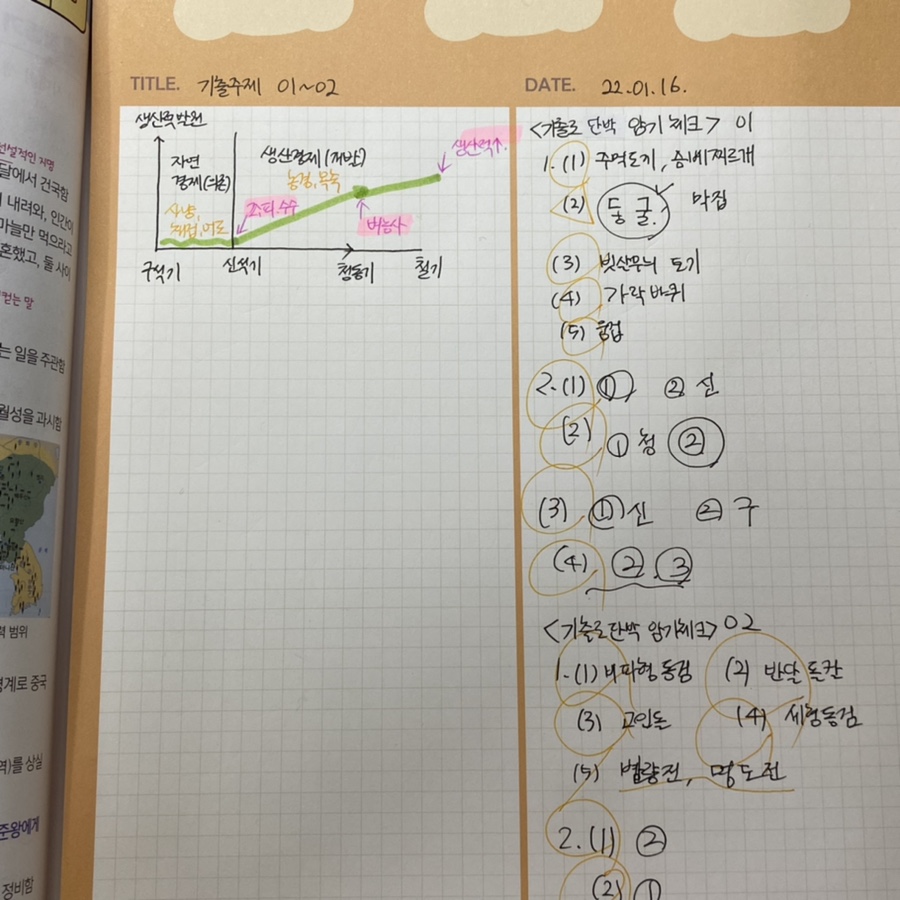 TITLE. 기출주제 01~02
DATE. 22.01.16.
생산력 발전
자연
경제(의존)
사냥,
채집, 어로
생산경제(개발)
농경, 목축
조.피.수수
벼농사
생산력↑.
구석기
신석기
청동기
철기
<기출로 단박 암기 체크> 01
1. (1) 주먹도끼, 슴베찌르개
(2) 동굴, 막집
(3) 빗살무늬 토기
(4) 가락바퀴
(5) 움집
2. (1) ① ② 신
(2) ① 청 ②
(3) ① 신 ② 구
(4) ②, ③
<기출로 단박 암기체크> 02
1. (1) 비파형 동검 (2) 반달 돌칼
(3) 고인돌 (4) 세형동검
(5) 반량전, 명도전
2. (1) ②
(2) ①
달에서 건국함
내려와, 인간이
마늘만 먹으라고
혼했고, 둘 사이
컫는 말
는 일을 주관함
월성을 과시함
력 범위
경계로 중국
역)를 상실
준왕에게
정비함